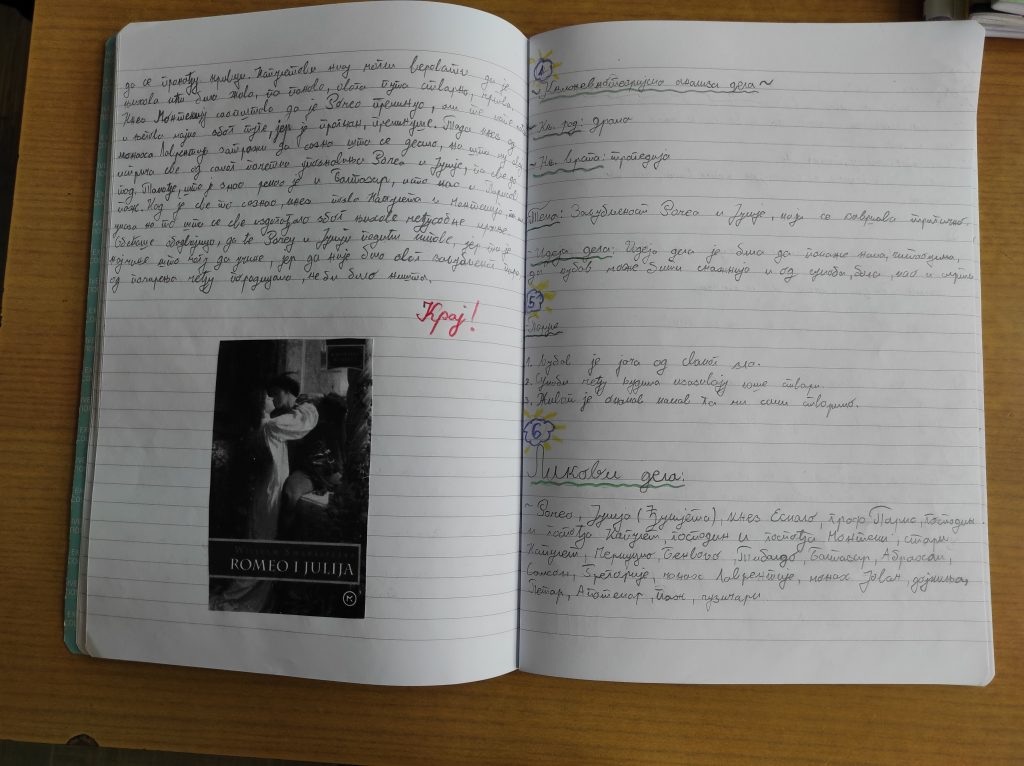 да се пронађу кривци. Капулетови нису могли веровати да је
њихова кћи била жива, па поново, овога пута стварно, мртва.
Кнез Монтекију саопштава да је Ромео преминуо, али то није
и његова мајка због туге, јер је прогнан, преминула. Тада кнез од
монаха Лаврентија затражи да сазна шта се десило, на шта му овај
исприча све од самог почетка упознавања Ромеа и Јулије, па све до
тад. Такође, што је знао рекао је и Балтазар, исто као и Парисов
паж. Кад је све то сазнао, кнез позва Капулета и Монтекија,
указа на то шта се све издогађало због њихове међусобне мржње.
Обећаше обојица, да ће Ромеу и Јулији подићи кипове, јер то је
најмање што могу да учине, јер да није било ових заљубљених
од помирења међу породицама, не би било ништа.
Крај!
WILLIAM SHAKESPEARE
ROMEO I JULIJA
4
~ Књижевнотеоријска анализа дела ~
~ Књ. род: драма
~ Књ. врста: трагедија
Тема: Заљубљеност Ромеа и Јулије, која се завршава трагично.
Идеја дела: Идеја дела је била да покаже нама, читаоцима,
да љубав може бити снажнија и од сукоба, бола, као и смрти
5
Поруке
1. Љубав је јача од сваког зла.
2. Сукоби међу људима изазивају лоше ствари.
3. Живот је онакав какав га ми сами створимо.
6
Ликови дела:
~ Ромео, Јулија (Ђулијета), кнез Ескало, гроф Парис, господин
и госпођа Капулет, господин и госпођа Монтеки, стари
Капулет, Меркуцио, Бенволио, Тибалдо, Балтазар, Абрахам,
Самсон, Грегорије, монах Лаврентије, монах Јован, дојкиња,
Петар, Апотекар, паж, музичари.